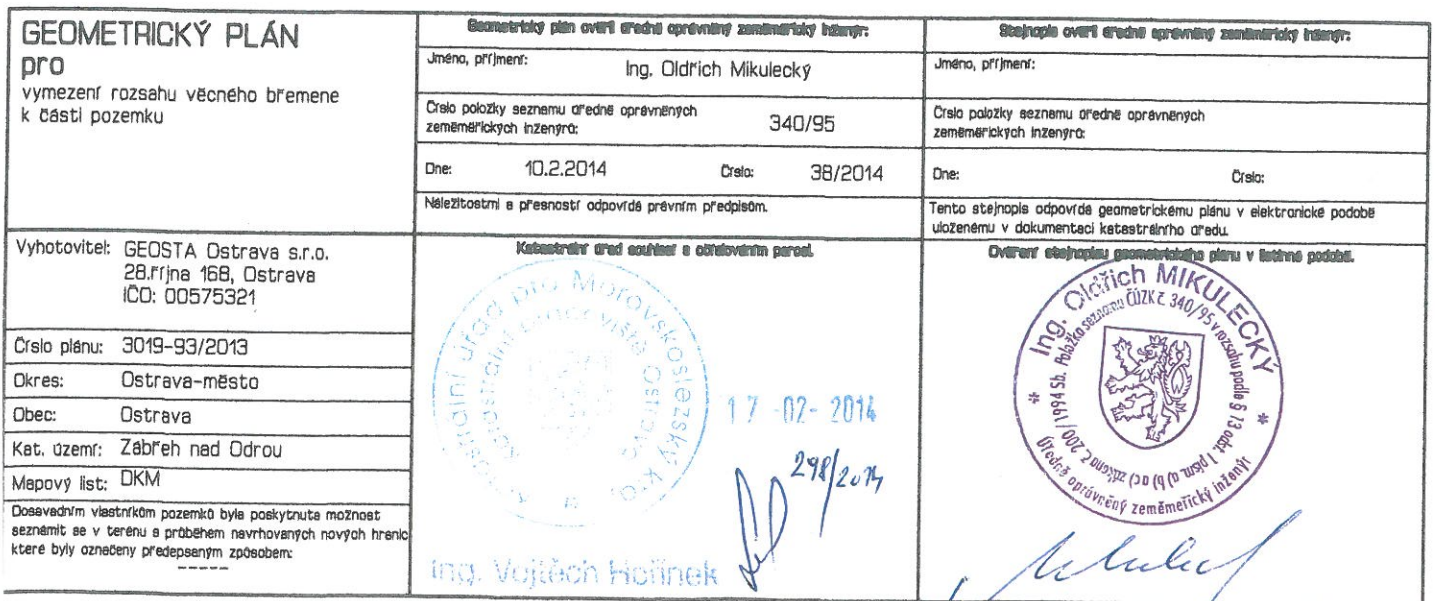 GEOMETRICKÝ PLÁN
pro
vymezení rozsahu věcného břemene
k části pozemku
Vyhotovitel: GEOSTA Ostrava s.r.o.
28.října 168, Ostrava
IČO: 00575321
Číslo plánu: 3019-93/2013
Okres: Ostrava-město
Obec: Ostrava
Kat. území: Zábřeh nad Odrou
Mapový list: DKM
Dosavadním vlastníkům pozemků byla poskytnuta možnost
seznámit se v terénu s průběhem navrhovaných nových hranic
které byly označeny předepsaným způsobem:
-----
Geometrický plán ověřil úředně oprávněný zeměměřický inženýr:
Jméno, příjmení: Ing. Oldřich Mikulecký
Číslo položky seznamu úředně oprávněných
zeměměřických inženýrů: 340/95
Dne: 10.2.2014 Číslo: 38/2014
Náležitostmi a přesností odpovídá právním předpisům.
Katastrální úřad souhlasí s očíslováním parcel.
Katastrální úřad pro Moravskoslezský kraj
Katastrální pracoviště Ostrava
17 -02- 2014
298/2014
Ing. Vojtěch Hořínek
Stejnopis ověřil úředně oprávněný zeměměřický inženýr:
Jméno, příjmení:
Číslo položky seznamu úředně oprávněných
zeměměřických inženýrů:
Dne: Číslo:
Tento stejnopis odpovídá geometrickému plánu v elektronické podobě
uloženému v dokumentaci katastrálního úřadu.
Ověření stejnopisu geometrického plánu v listinné podobě.
Ing. Oldřich MIKULECKÝ
Položka seznamu ČÚZK č. 340/95 v rozsahu podle § 13 odst. 1 písm. a) b) a c) zákona č. 200/1994 Sb.
* Úředně oprávněný zeměměřický inženýr *